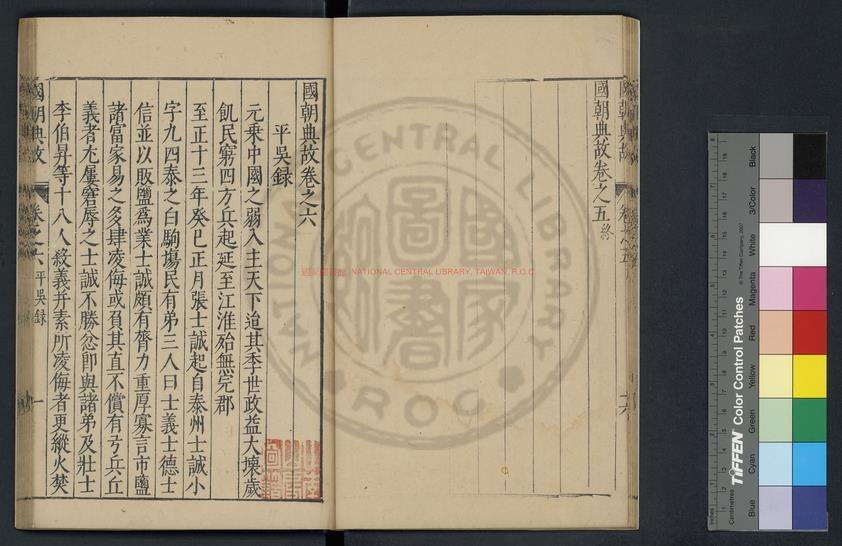 國朝典故卷之五終
國朝典故卷之六
平吳録
元乗中國之弱入主天下迨其季世政益大壞歲
飢民窮四方兵起延至江淮殆無完郡
至正十三年癸巳正月張士誠起自泰州士誠小
字九四泰之白駒場民有弟三人曰士義士德士
信並以販鹽爲業士誠頗有膂力重厚寡言市鹽
諸富家易之多肆凌侮或負其直不償有弓兵丘
義者尤屢窘辱之士誠不勝忿即與諸弟及壯士
李伯昇等十八人殺義并素所凌侮者更縱火焚
國朝典故 卷之六 平吳録 一
NATIONAL CENTRAL LIBRARY, TAIWAN, R.O.C.
NATIONAL CENTRAL LIBRARY
ROC
國家圖書館
TIFFEN Color Control Patches
© The Tiffen Company, 2007
Centimetres
Inches
Blue
Cyan
Green
Yellow
Red
Magenta
White
3/Color
Black